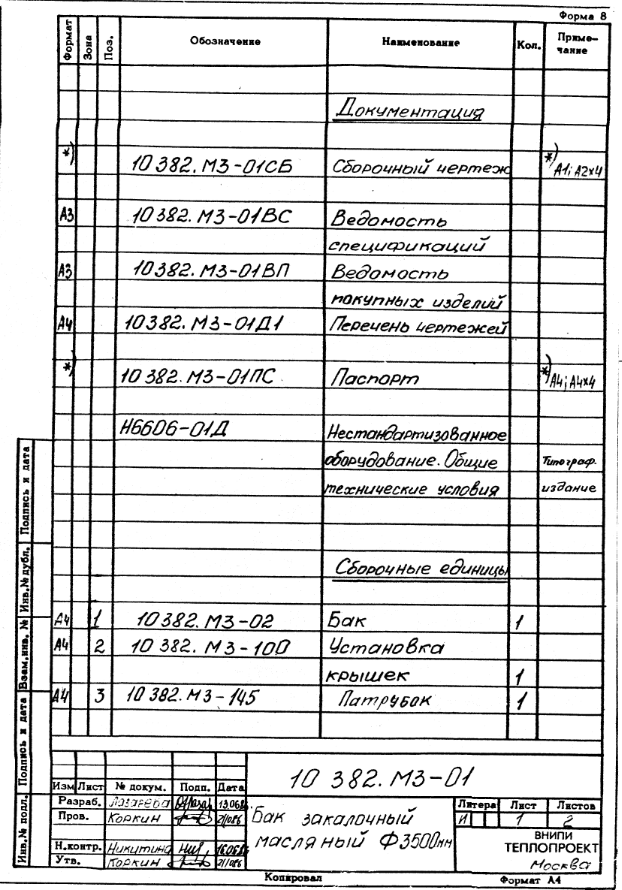 Форма 8
Формат Зона Поз. Обозначение Наименование Кол. Приме-
чание
Документация
*) 10 382. М3-01СБ Сборочный чертеж *) А1; А2х4
А3 10 382. М3-01ВС Ведомость
спецификаций
А3 10 382. М3-01ВП Ведомость
покупных изделий
А4 10 382. М3-01Д1 Перечень чертежей
*) 10 382. М3-01ПС Паспорт *) А4; А4х4
Н6606-01Д Нестандартизованное
оборудование. Общие Типограф.
технические условия издание
Сборочные единицы
А4 1 10 382. М3-02 Бак 1
А4 2 10 382. М3-100 Установка
крышек 1
А4 3 10 382. М3-145 Патрубок 1
Инв.№ подл. Подпись и дата Взам.инв. № Инв.№ дубл. Подпись и дата
10 382. М3-01
Изм Лист № докум. Подп. Дата
Разраб. Лазарева
Пров. Коркин
Н.контр. Никитина
Утв. Коркин
Бак закалочный
масляный Ф3500мм
Литера Лист Листов
И 1 2
ВНИПИ
ТЕПЛОПРОЕКТ
Москва
Копировал Формат А4